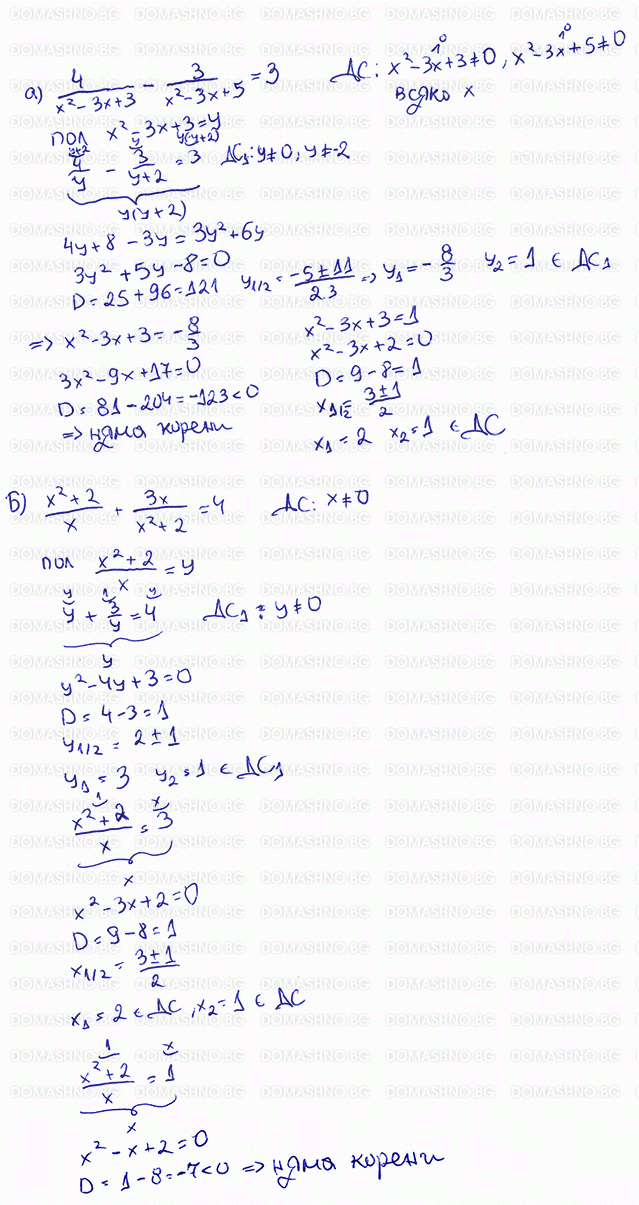 а) 4/(x²-3x+3) - 3/(x²-3x+5) = 3   ДС: x²-3x+3≠0, x²-3x+5≠0
всяко x
пол x²-3x+3=y
4/y - 3/(y+2) = 3   ДС₁: y≠0, y≠-2
y(y+2)
4y+8-3y=3y²+6y
3y²+5y-8=0
D=25+96=121   y₁/₂=(-5±11)/2.3 => y₁=-8/3   y₂=1 ∈ ДС₁
=> x²-3x+3=-8/3
3x²-9x+17=0
D=81-204=-123<0
=> няма корени
x²-3x+3=1
x²-3x+2=0
D=9-8=1
x₁/₂=(3±1)/2
x₁=2   x₂=1 ∈ ДС
Б) (x²+2)/x + 3x/(x²+2) = 4   ДС: x≠0
пол (x²+2)/x = y
y + 3/y = 4   ДС₁: y≠0
y
y²-4y+3=0
D=4-3=1
y₁/₂=2±1
y₁=3   y₂=1 ∈ ДС₁
(x²+2)/x = 3
x
x²-3x+2=0
D=9-8=1
x₁/₂=(3±1)/2
x₁=2 ∈ ДС, x₂=1 ∈ ДС
(x²+2)/x = 1
x
x²-x+2=0
D=1-8=-7<0 => няма корени
DOMASHNO.BG